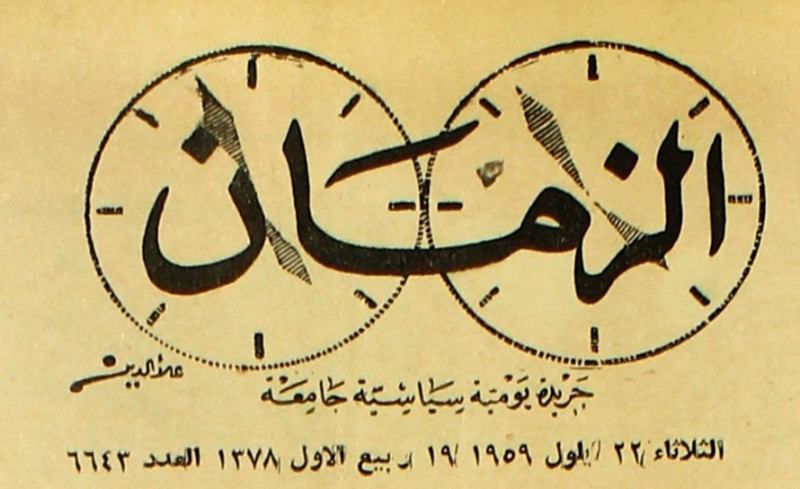 الزمان
علاءالدين
جريدة يومية سياسية جامعة
الثلاثاء/ ٢٢ /يلول ١٩٥٩ /١٩ ربيع الاول ١٣٧٨ العدد ٦٦٤٣